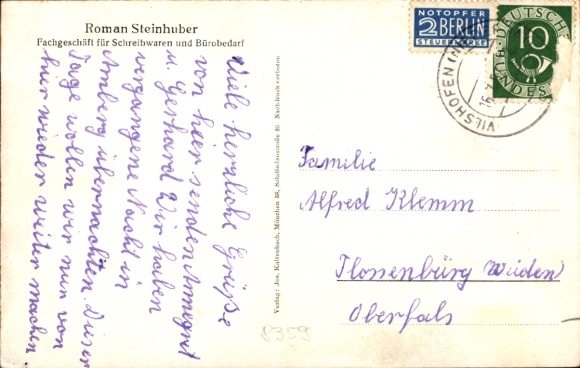 Roman Steinhuber
Fachgeschäft für Schreibwaren und Bürobedarf
Viele herzliche Grüße
von hier senden Annegret
u. Gerhard Wir haben
vergangene Nacht in
Amberg übernachten. Dieser
Tage wollen wir nun von
hier wieder weiter machen
Verlag: Jos. Kaltenbach, München 58, Nachdruck verboten
NOTOPFER
2 BERLIN
STEUERMARKE
DEUTSCHE
BUNDESPOST
10
VILSHOFEN
Familie
Alfred Klemm
Flossenbürg Weiden
Oberfals
8359